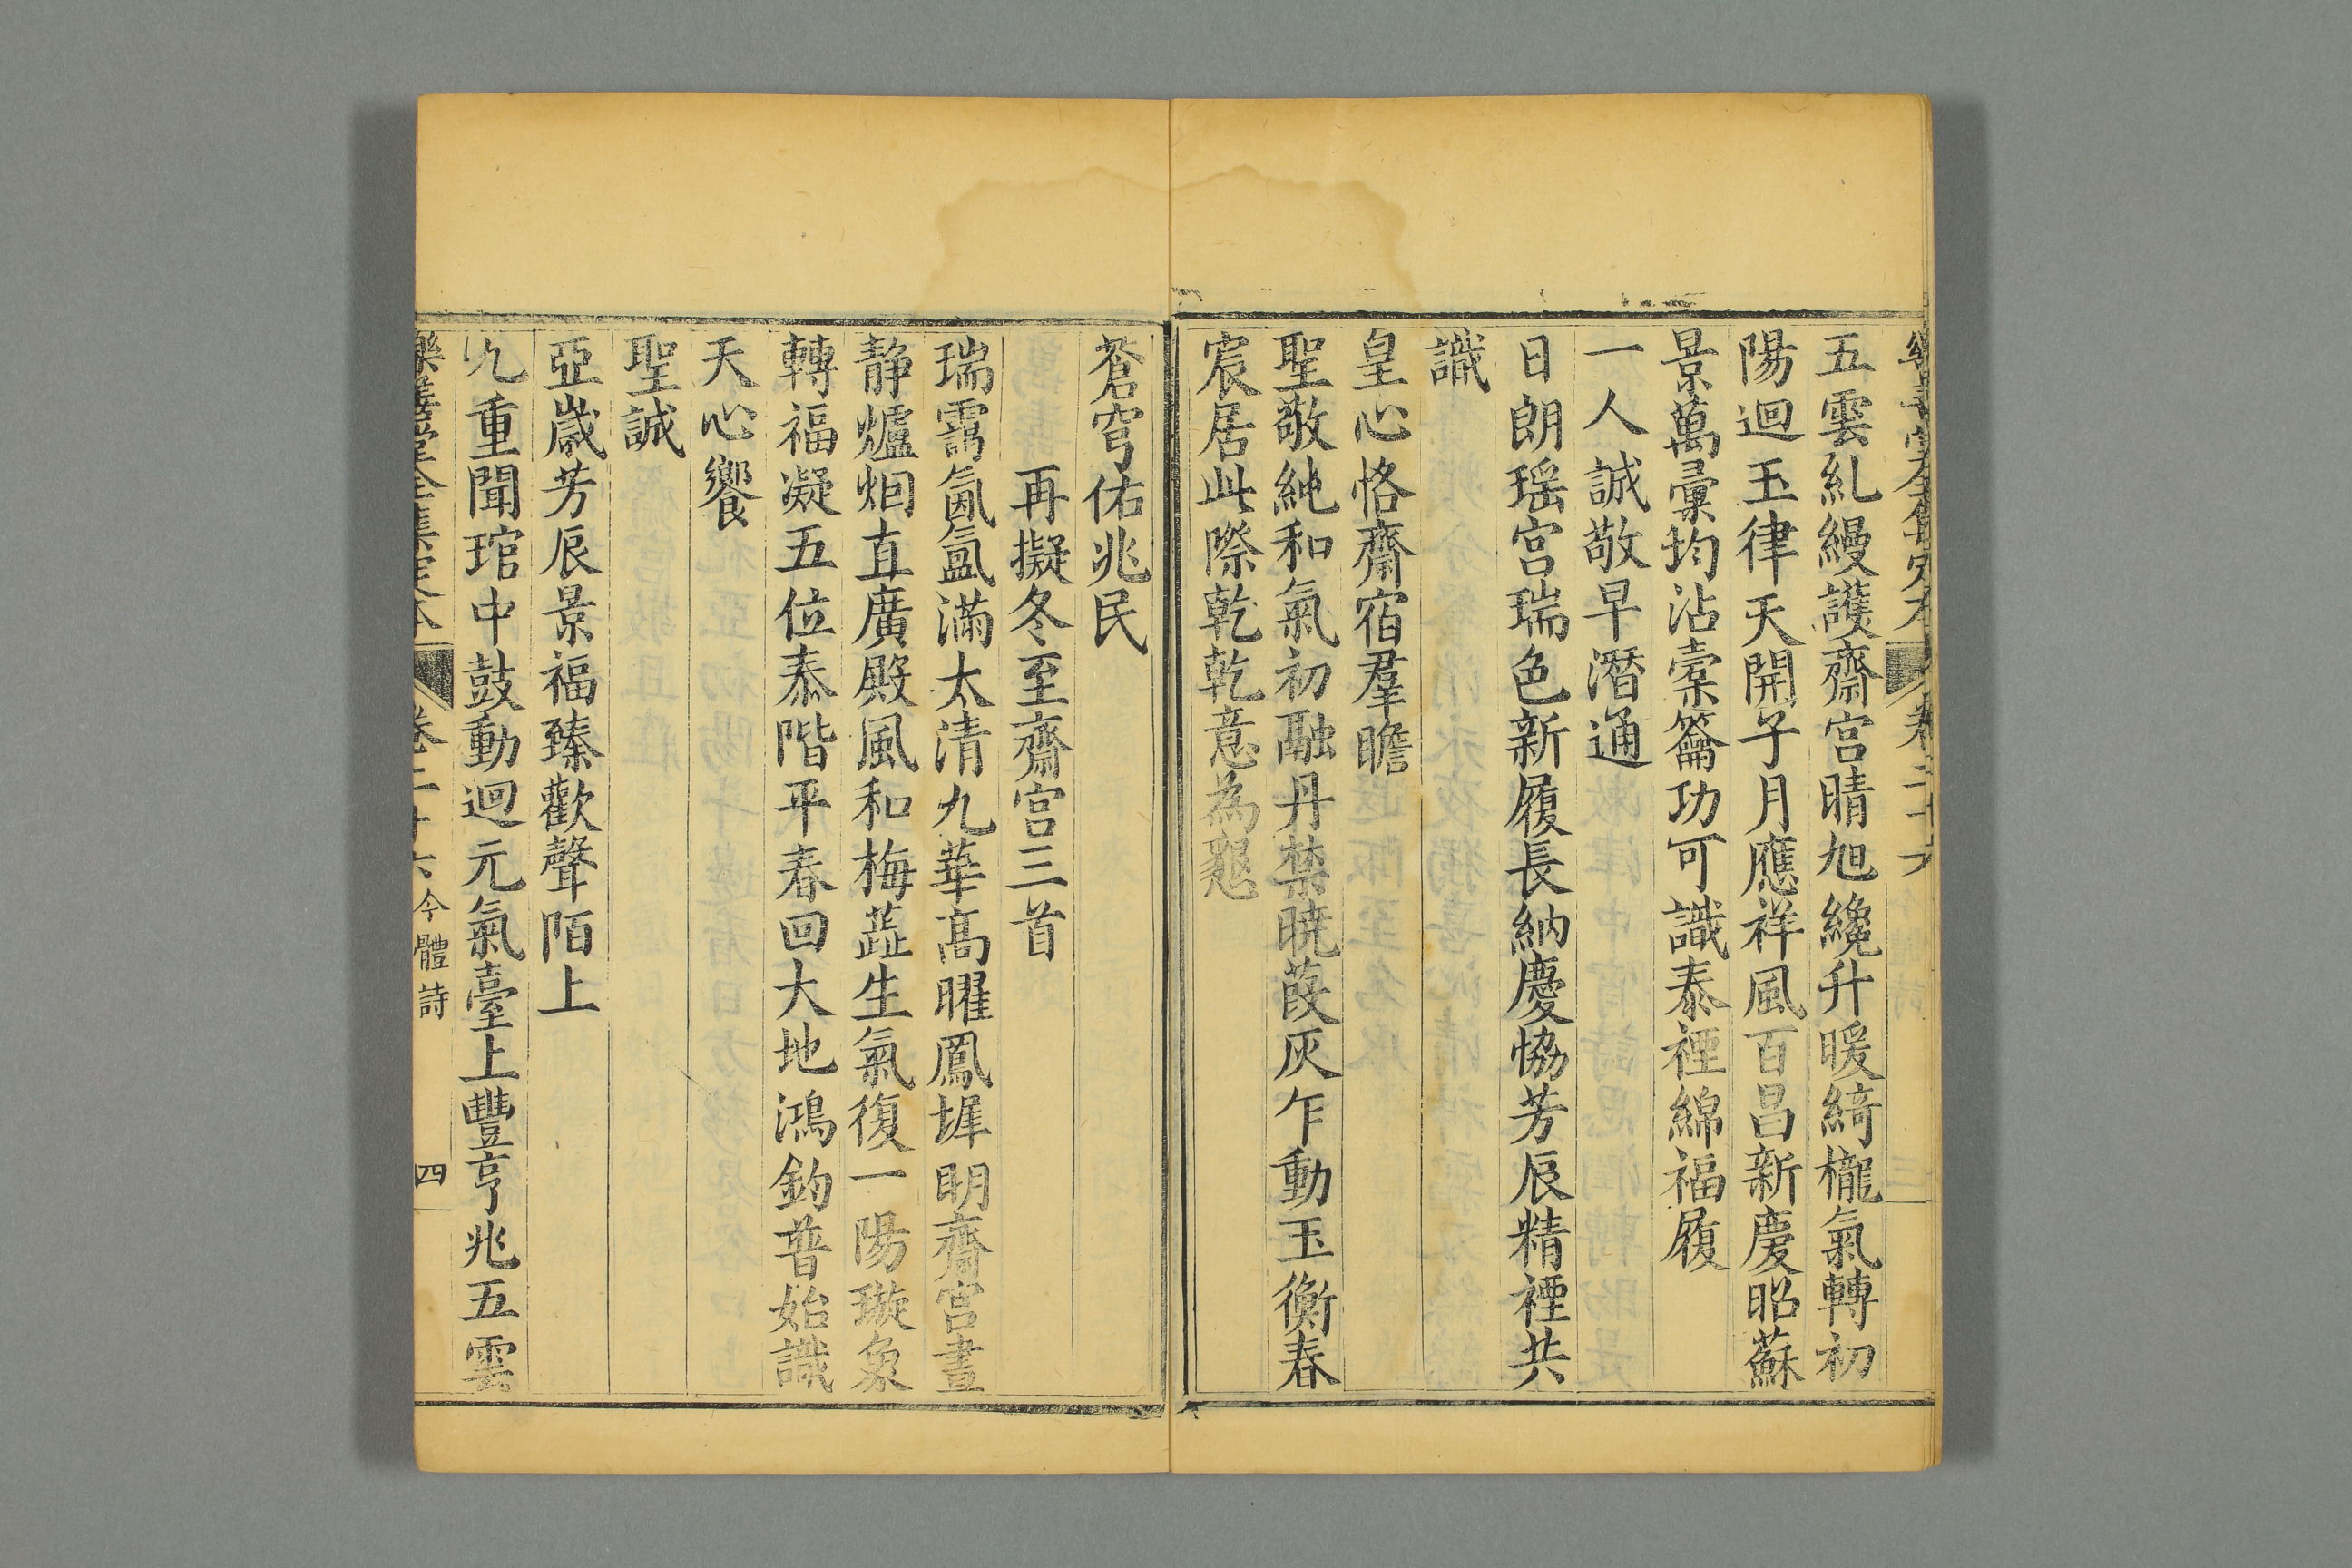 樂善堂全集定本 卷二十六
五雲糺縵護齋宫晴旭纔升暖綺櫳氣轉初
陽迴玉律天開子月應祥風百昌新慶昭蘇
景萬彚均沾橐籥功可識泰禋綿福履
一人誠敬早潛通
日朗瑶宫瑞色新履長納慶恊芳辰精禋共
識
皇心恪齋宿羣瞻
聖敬純和氣初融丹禁曉葭灰乍動玉衡春
宸居此際乾乾意為懇
蒼穹佑兆民
再擬冬至齋宫三首
瑞靄氤氲滿太清九華高曜鳳墀明齋宫晝
静爐烟直廣殿風和梅蕋生氣復一陽璇象
轉福凝五位泰階平春回大地鴻鈞普始識
天心饗
聖誠
亞嵗芳辰景福臻歡聲陌上
九重聞琯中鼓動迴元氣臺上豐亨兆五雲
樂善堂全集定本 卷二十六 今體詩 四